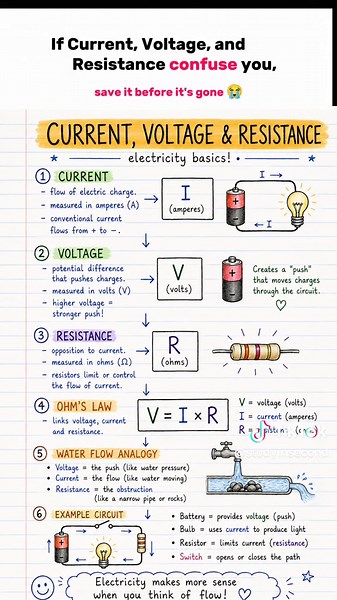 If Current, Voltage, and
Resistance confuse you,
save it before it's gone 😭
CURRENT, VOLTAGE & RESISTANCE
★ electricity basics! • ★
1 CURRENT
– flow of electric charge.
– measured in amperes (A)
– conventional current
flows from + to –.
I
(amperes)
I →
+
← I
2 VOLTAGE
– potential difference
that pushes charges.
– measured in volts (V)
– higher voltage =
stronger push!
V
(volts)
+
Creates a "push"
that moves charges
through the circuit.
3 RESISTANCE
– opposition to current.
– measured in ohms (Ω)
– resistors limit or control
the flow of current.
R
(ohms)
4 OHM'S LAW
– links voltage, current
and resistance.
V = I × R
V = voltage (volts)
I = current (amperes)
R =
5 WATER FLOW ANALOGY
• Voltage = the push (like water pressure)
• Current = the flow (like water moving)
• Resistance = the obstruction
(like a narrow pipe or rocks)
6 EXAMPLE CIRCUIT
+
• Battery = provides voltage (push)
• Bulb = uses current to produce light
• Resistor = limits current (resistance)
• Switch = opens or closes the path
Electricity makes more sense
when you think of flow!